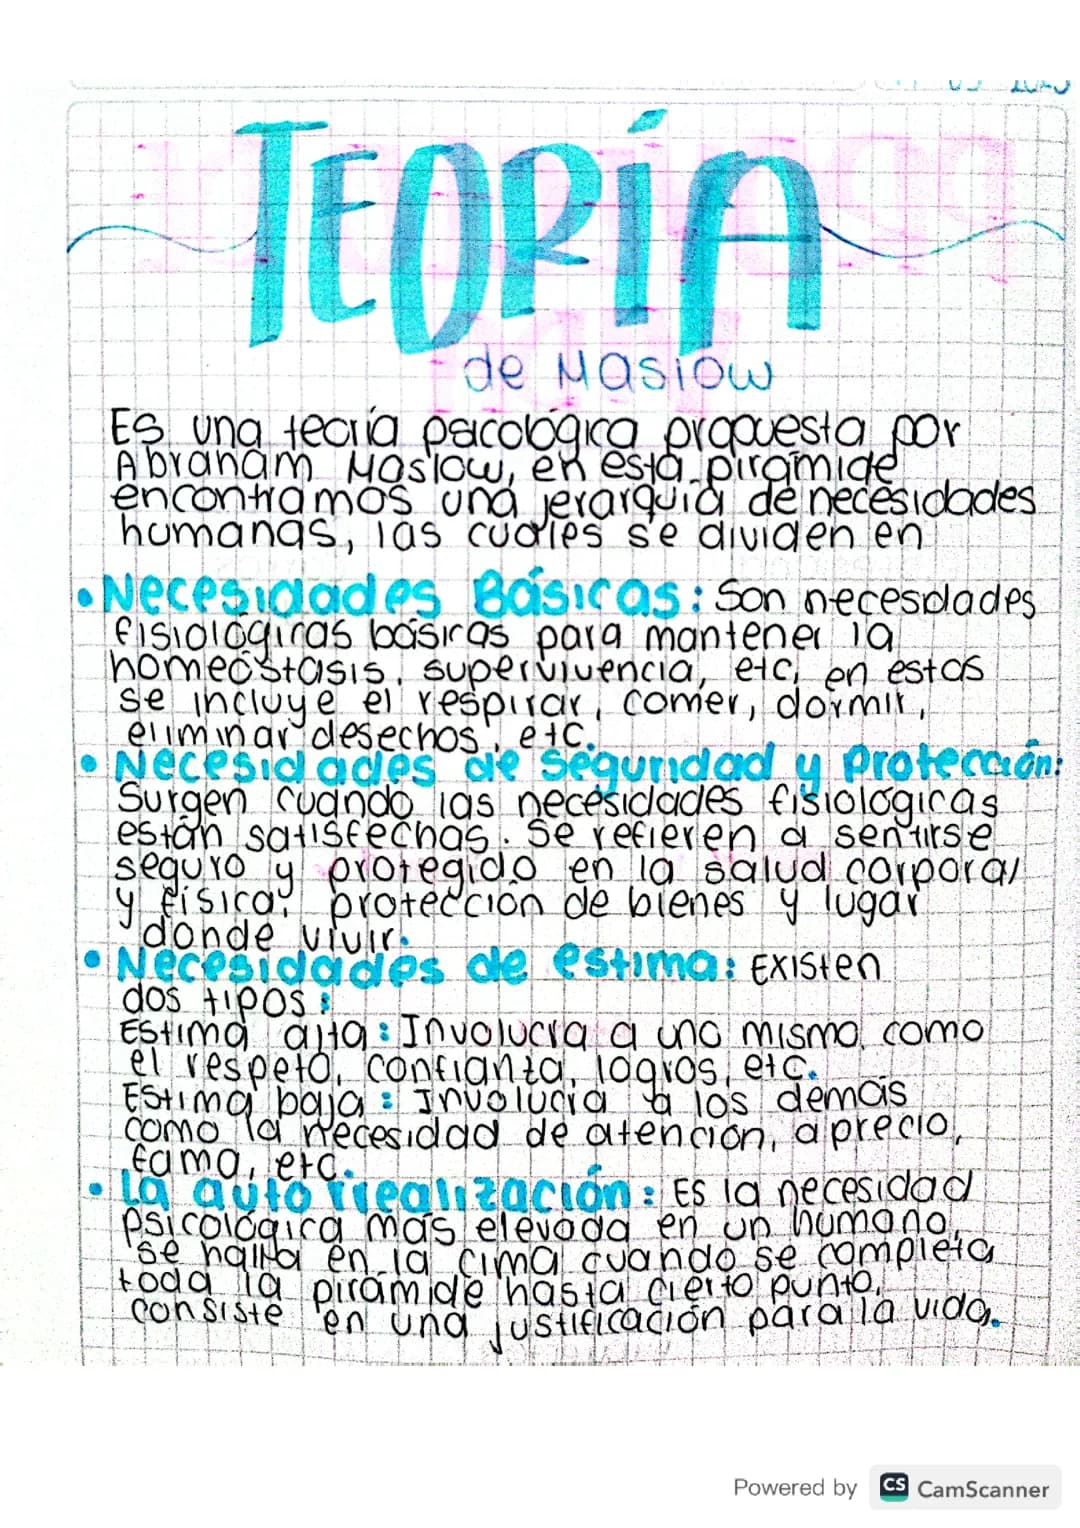 TEORÍA
de Maslow
Es una teoría psicológica propuesta por
Abraham Maslow, en esta pirámide
encontramos una jerarquía de necesidades
humanas, las cuales se dividen en
• Necesidades Básicas: Son necesidades
fisiológicas básicas para mantener la
homeóstasis, supervivencia, etc, en estas
se incluye el respirar, comer, dormir,
eliminar desechos, etc.
• Necesidades de seguridad y protección:
Surgen cuando las necesidades fisiológicas
están satisfechas. Se refieren a sentirse
seguro y protegido en la salud corporal
y física, protección de bienes y lugar
donde vivir.
• Necesidades de estima: Existen
dos tipos:
Estima alta: Involucra a uno mismo, como
el respeto, confianza, logros, etc.
Estima baja: Involucra a los demás
como la necesidad de atención, aprecio,
fama, etc.
• La auto realización: Es la necesidad
psicológica más elevada en un humano,
se halla en la cima cuando se completa
toda la pirámide hasta cierto punto,
consiste en una justificación para la vida.
Powered by CS CamScanner